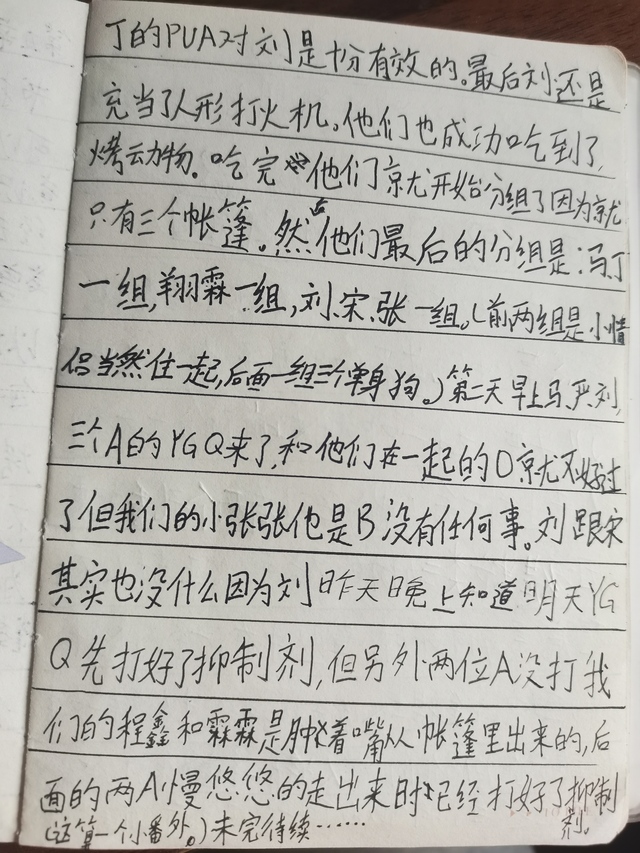 丁的PUA对刘是十份有效的。最后刘还是
充当了人形打火机。他们也成功吃到了,
烤动物。吃完 他们就开始分组了因为就
只有三个帐篷。然后他们最后的分组是:冯,丁
一组,翔霖一组,刘、宋、张一组。(前两组是小情
侣当然住一起,后面一组三个单身狗。)第二天早上马、严、刘,
三个A的YGQ来了,和他们在一起的O就不好过
了但我们的小张张他是B没有任何事。刘跟宋
其实也没什么因为刘昨天晚上知道明天YG
Q先打好了抑制剂,但另外两位A没打我
们的程鑫和霖霖是肿着嘴从帐篷里出来的,后
面的两A慢悠悠的走出来时已经打好了抑制
剂。
(这算一个小番外。)未完待续……